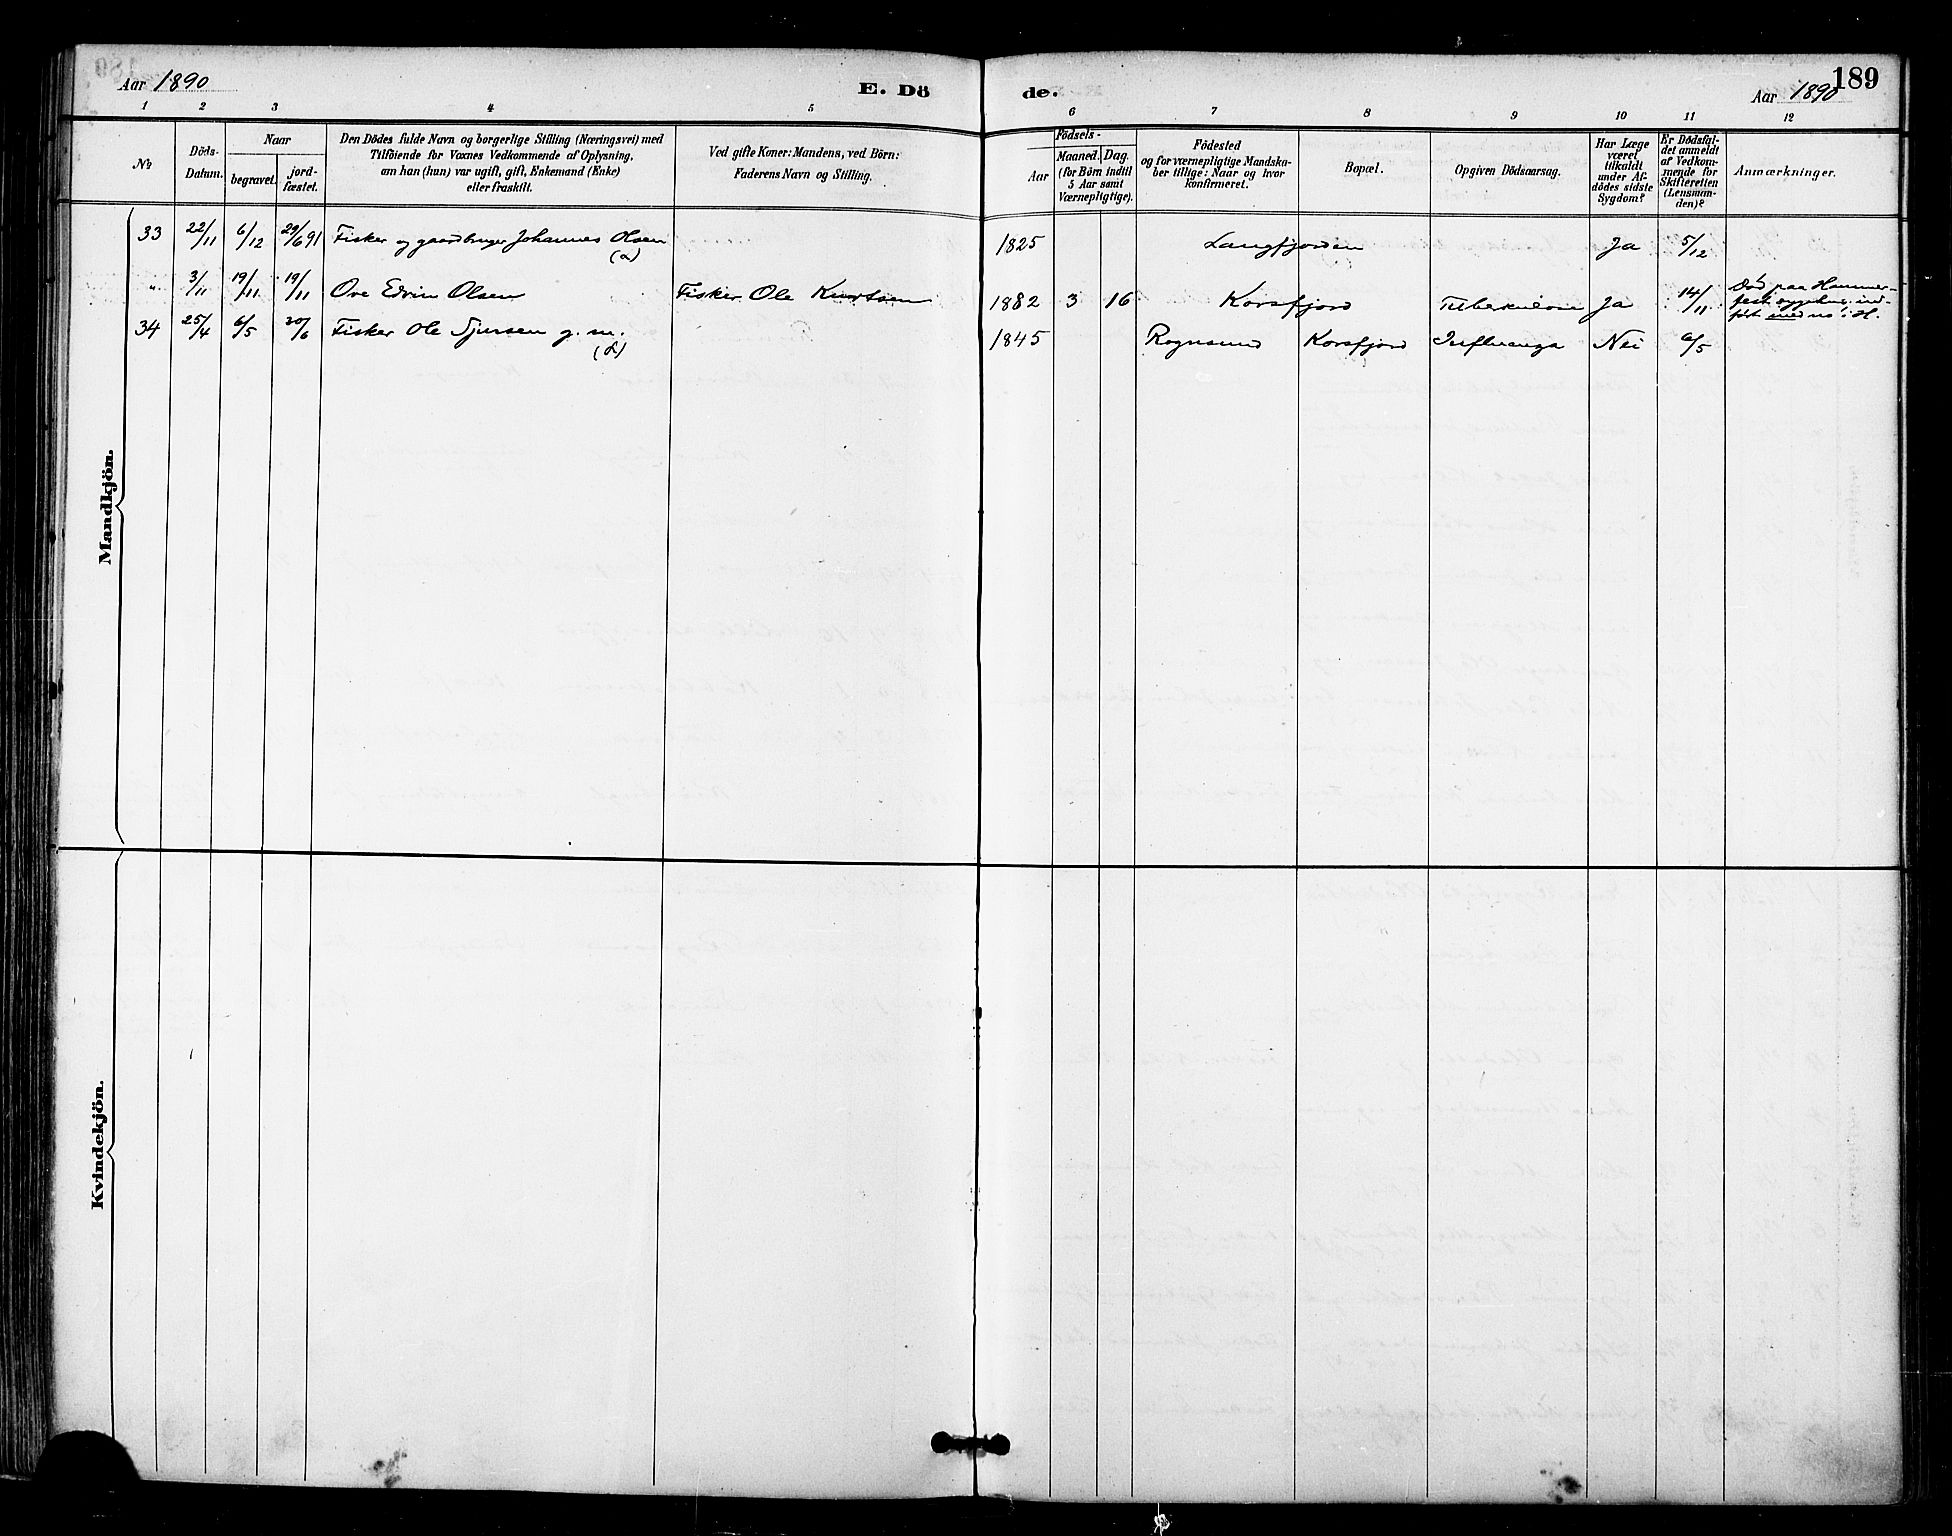 189
Aar 1890
E. Dö
de.
Aar 1890
1 2 3 4 5 6 7 8 9 10 11 12
No
Döds-
Datum.
Naar
begravet.
jord-
fæstet.
Den Dödes fulde Navn og borgerlige Stilling (Næringsvei) med
Tilföiende for Voxnes Vedkommende af Oplysning,
om han (hun) var ugift, gift, Enkemand (Enke)
eller fraskilt.
Ved gifte Koner: Mandens, ved Börn:
Faderens Navn og Stilling.
Födsels-
Aar
Maaned. Dag.
(for Börn indtil
5 Aar samt
Værnepligtige).
Födested
og for værnepligtige Mandska-
ber tillige: Naar og hvor
konfirmeret.
Bopæl.
Opgiven Dödsaarsag.
Har Læge
været
tilkaldt
under Af-
dödes sidste
Sygdom?
Er Dödsfal-
det anmeldt
af Vedkom-
mende for
Skifteretten
(Lensman-
den)?
Anmærkninger.
Mandkjön.
33 22/11 6/12 29/6 91 Fisker og gaardbruger Johannes Olsen 1825 Langfjorden Ja 5/12
(L)
" 3/11 19/11 19/11 Ove Edvin Olsen Fisker Ole Kurtsen 1882 3 16 Korsfjord Tuberkulose Ja 14/11 Död paa Hammer-
fest sygehus, ind-
ført med no i H.
34 25/4 6/5 30/6 Fisker Ole Sjursen g. m. 1845 Rognsund Korsfjord Influenza Nei 6/5
(L)
Kvindekjön.